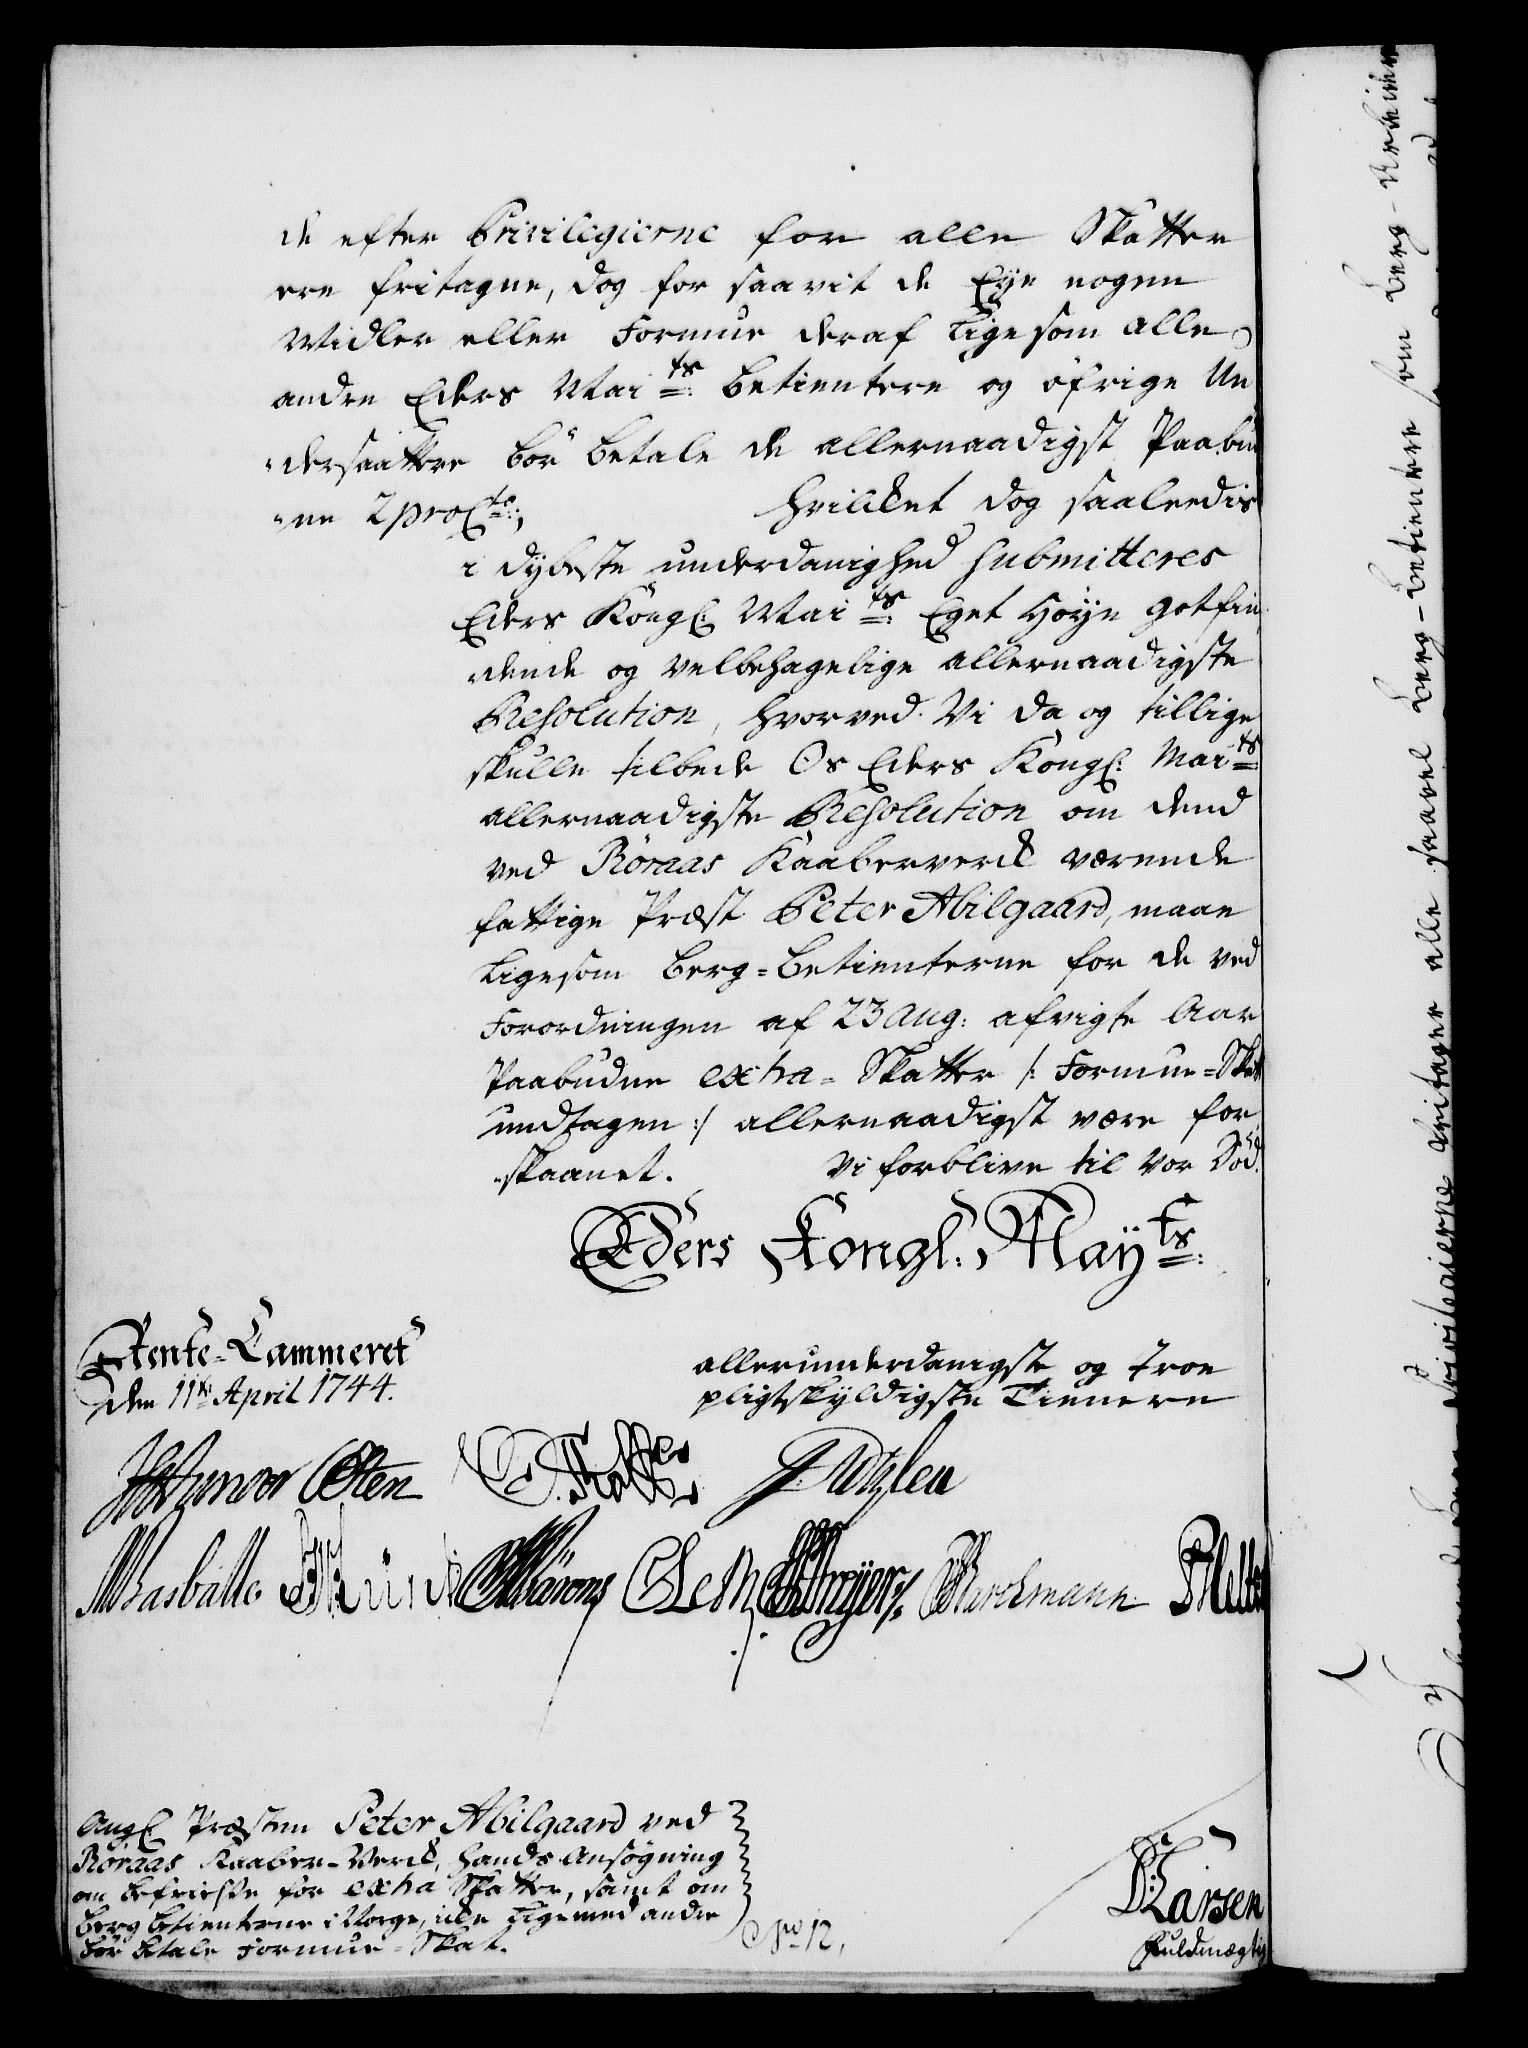 de efter Privilegierne for alle Skatter
ere fritagne, dog for saavit de Eye nogen
Midler eller Formue deraf ligesom alle
andre Eders Mai ts: betientere og öfrige Un
-dersaattere bör betale de allernaadigst Paabud
-ne 2 pro Cto:; hvilcket dog saaleedis
i dybeste underdanighed submitteres
Eders Kongl: Mai ts: Eget Höye gotfin
-dende og velbehagelige allernaadigste
Resolution, hvorved Vi da og tillige
skulle tilbede Os Eders Kongl: Mai ts:
allernaadigste Resolution om dend
ved Röraas Kaaberverck værende
fattige Præst Peter Abilgaard, maae
ligesom Berg-Betienterne for de ved
Forordningen af 23 Aug: afvigte Aar
Paabudne extra-Skatter /: Formue-Skat
undtagen :/ allernaadigst være for
-skaanet. Vi forblive til vor Död
Eders Kongl: Mayts:
Rente-Cammeret
den 11te April 1744.
allerunderdanigste og troe
pligtskyldigste Tienere
Holten
Basballe
Barchmann
Angl Præsten Peter Abilgaard ved
Röraas Kaaber-Verck, hands Ansögning
om befrielse for extra Skatter, samt om
Berg betienterne i Norge, icke lige med andre
bör betale Formue-Skat.
No 12,
Larsen
Fuldmægtig
alle saavel Berg-Betientere som Berg-